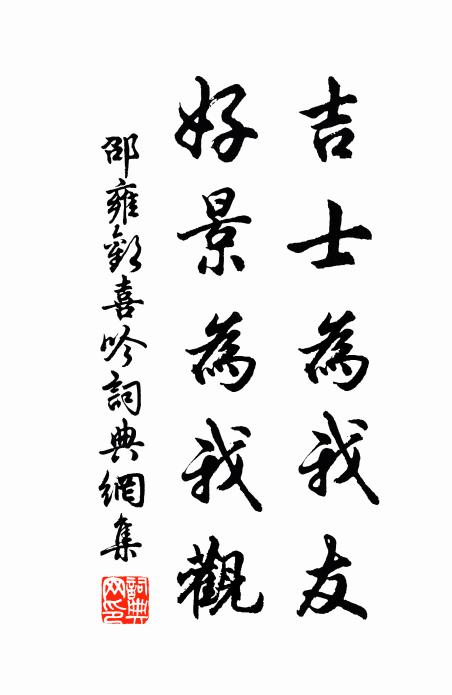 吉士為我友
好景為我觀
邵雍歡喜吟詞典網集
詞典網印